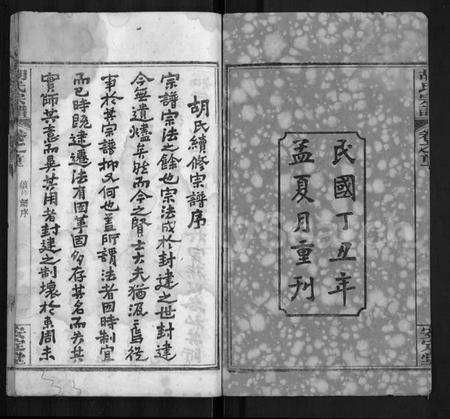 民國丁丑年
孟夏月重刊
胡氏宗譜
卷之首
安定堂
胡氏續修宗譜序
宗譜宗法之餘也宗法成於封建之世封建
今無遺爐矣然而今之賢士大夫猶汲焉從
事於其宗譜抑又何也蓋所謂法者因時制宜
而已時既建遷法有因革固多存其名而失其
實師其意而異其用者封建之制壞於東周未
胡氏宗譜
卷之首
續修譜序
安定堂